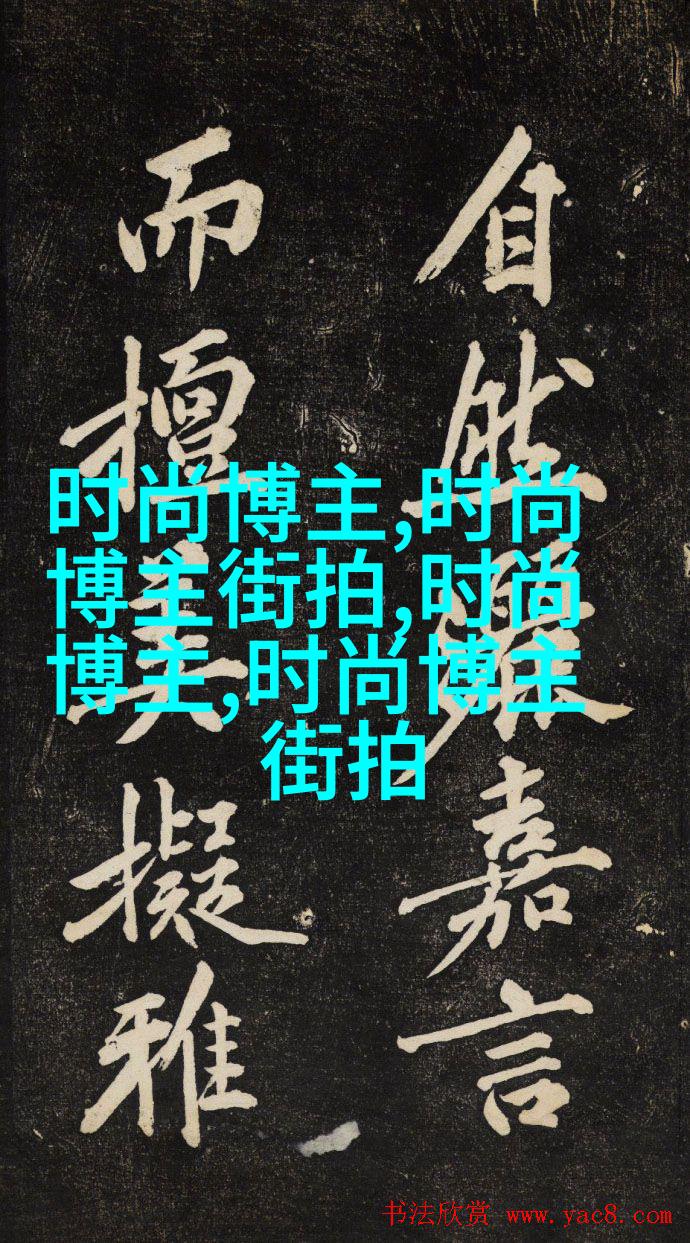 自然嘉言
而擅美擬雅
时尚博主,时尚
博主街拍,时尚
博主,时尚博主
街拍
书法欣赏 www.yac8.com